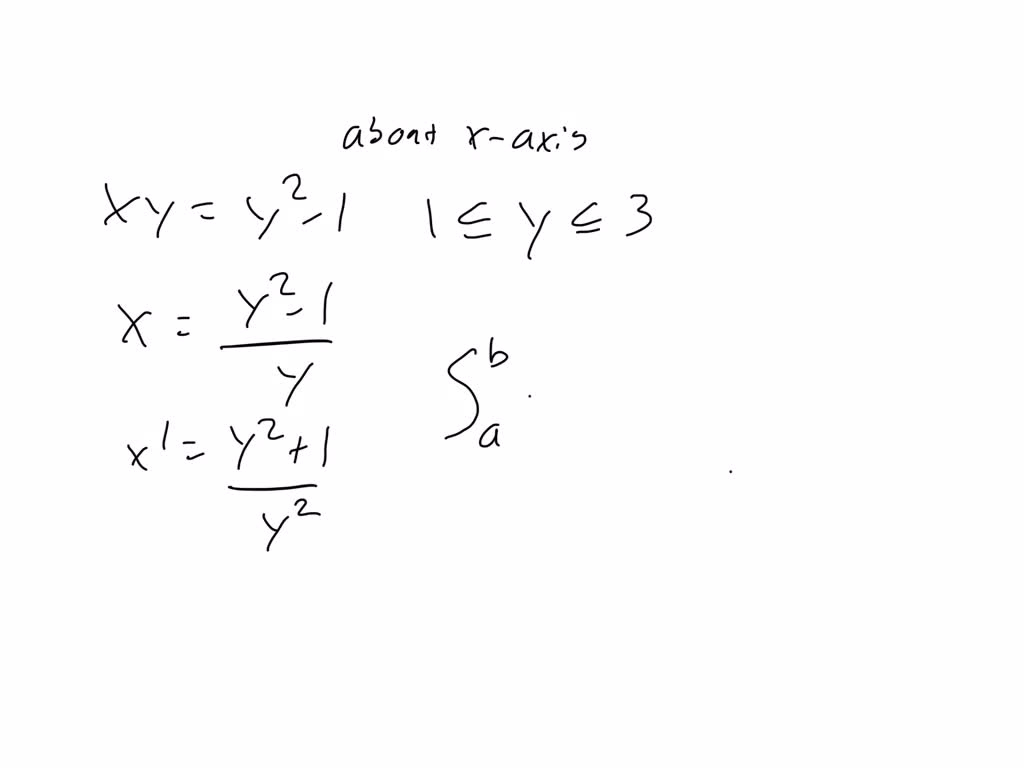 about x-axis
xy = y² - 1 1 ≤ y ≤ 3
x = (y² - 1) / y
∫_a^b
x' = (y² + 1) / y²